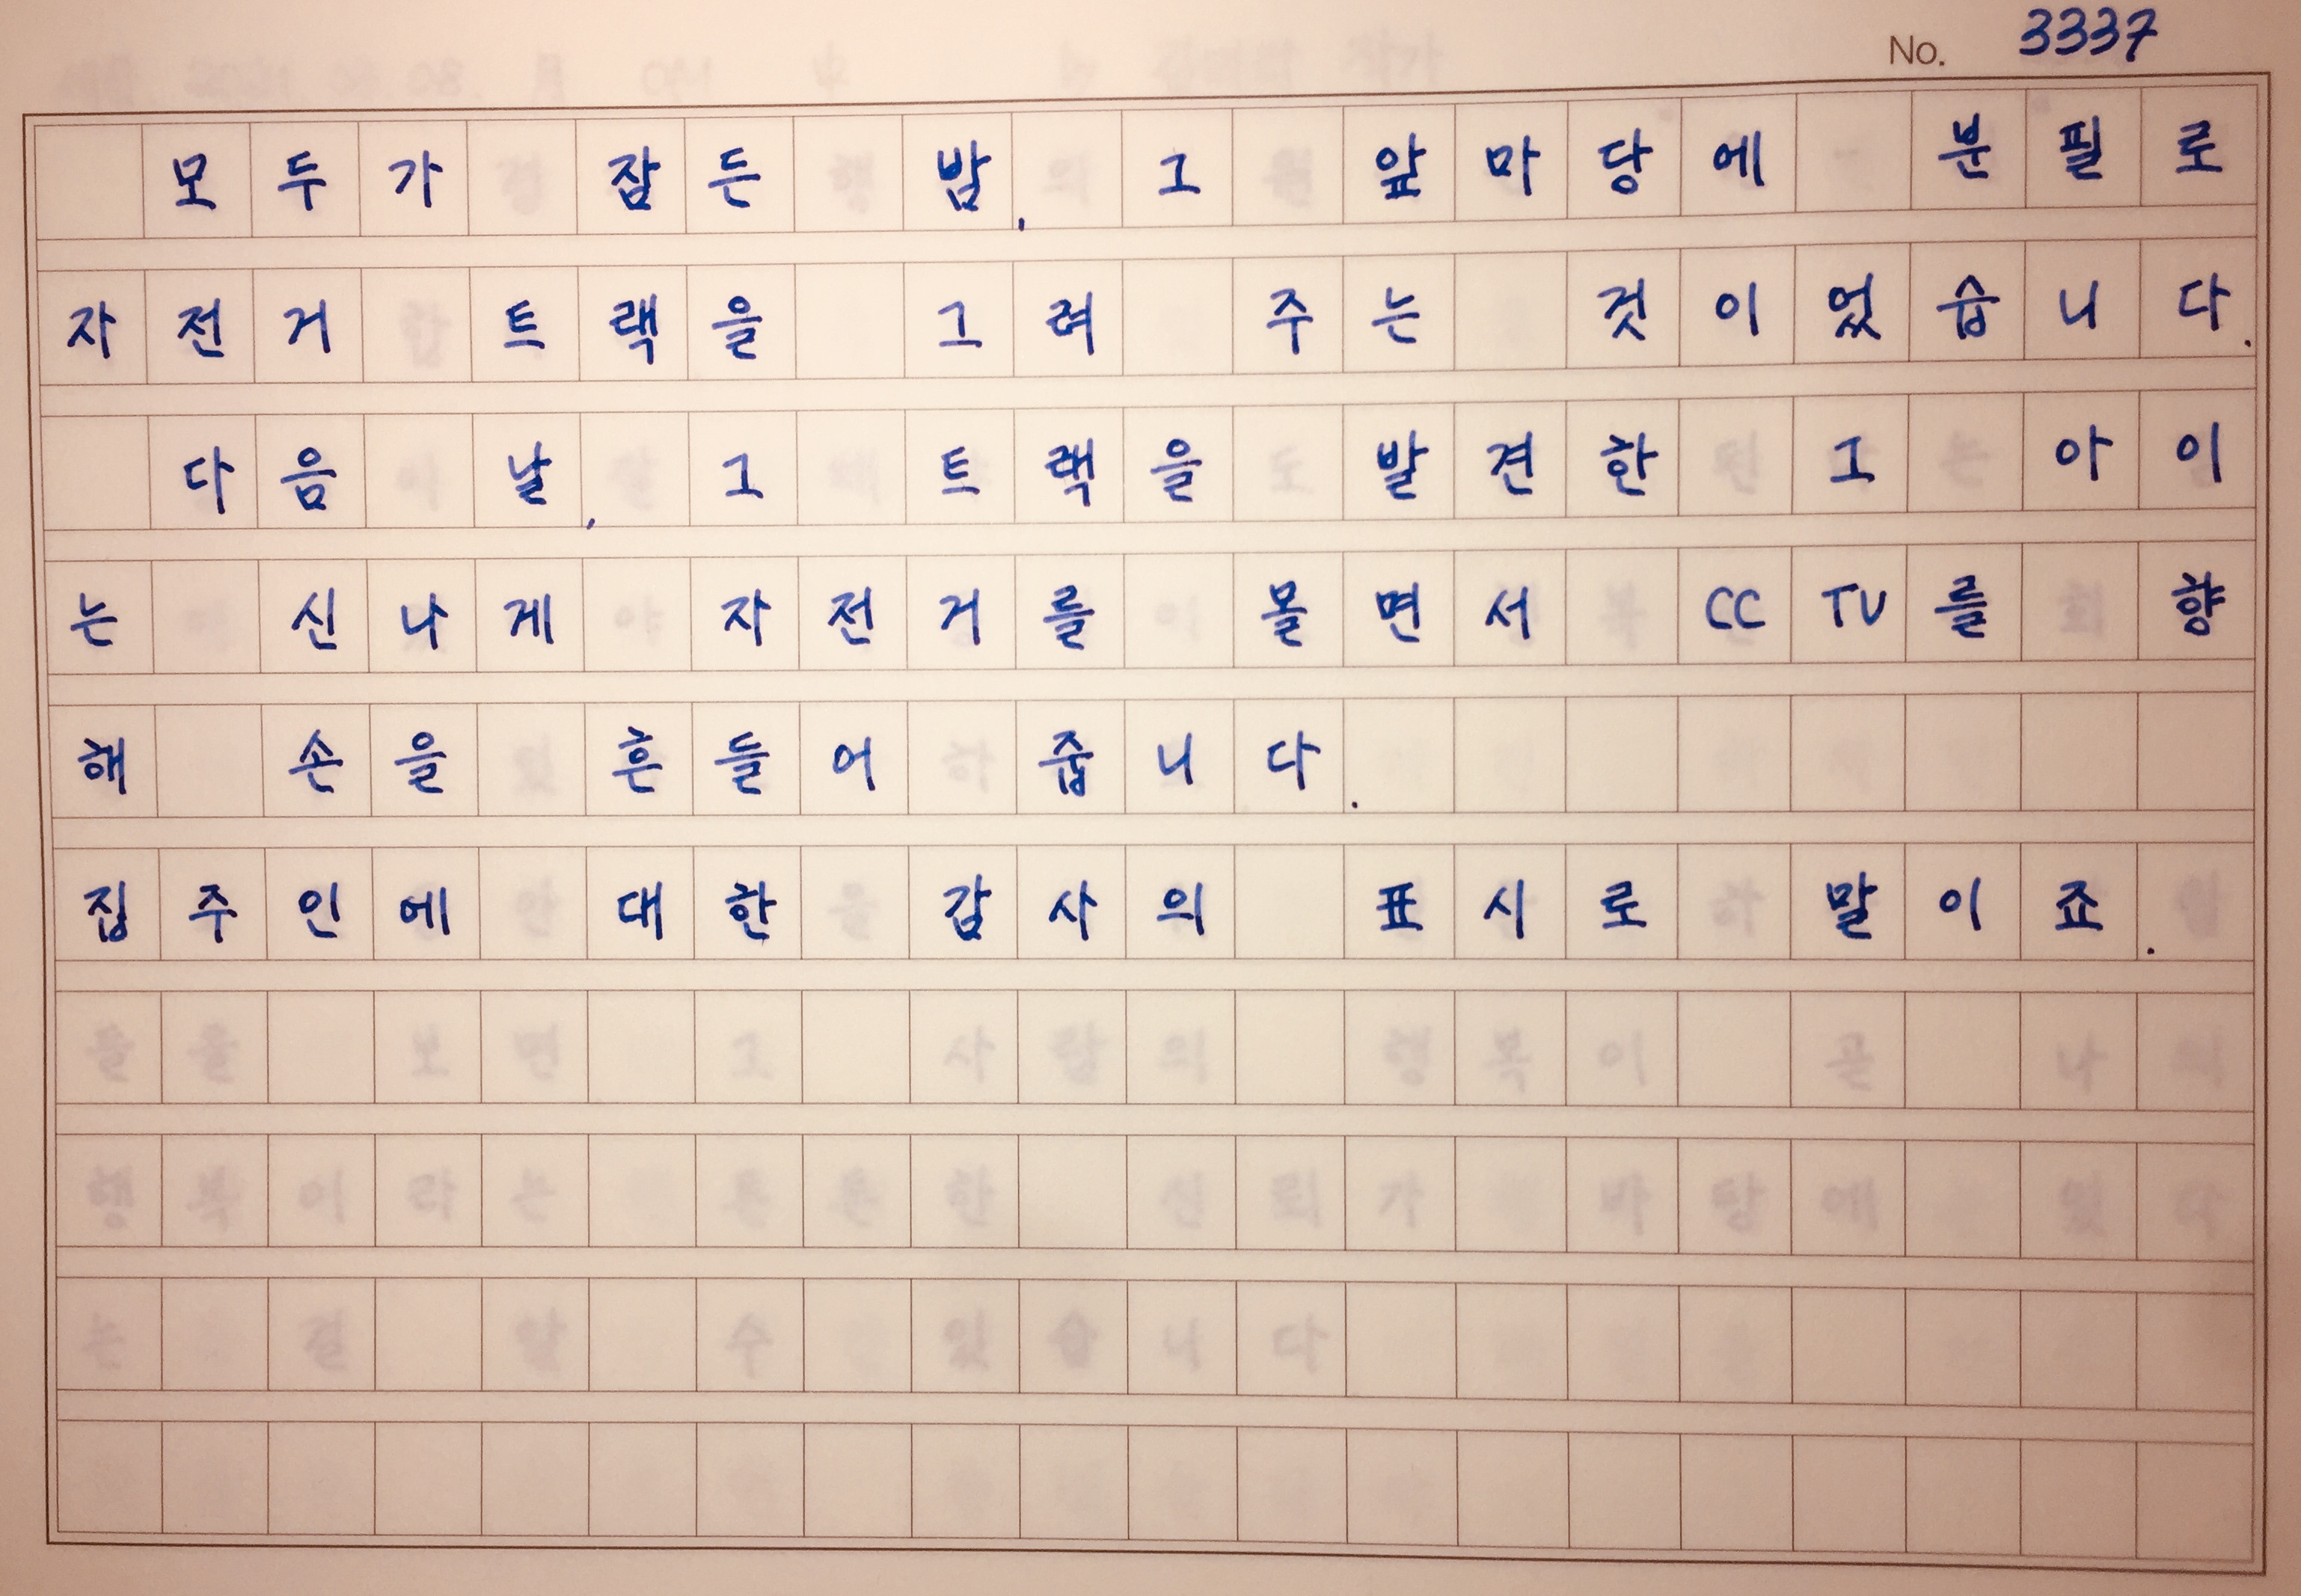 No. 3337
모두가 잠든 밤, 그 앞마당에 분필로
자전거 트랙을 그려 주는 것이었습니다.
다음 날, 그 트랙을 발견한 그 아이
는 신나게 자전거를 몰면서 CCTV를 향
해 손을 흔들어 줍니다.
집주인에 대한 감사의 표시로 말이죠.